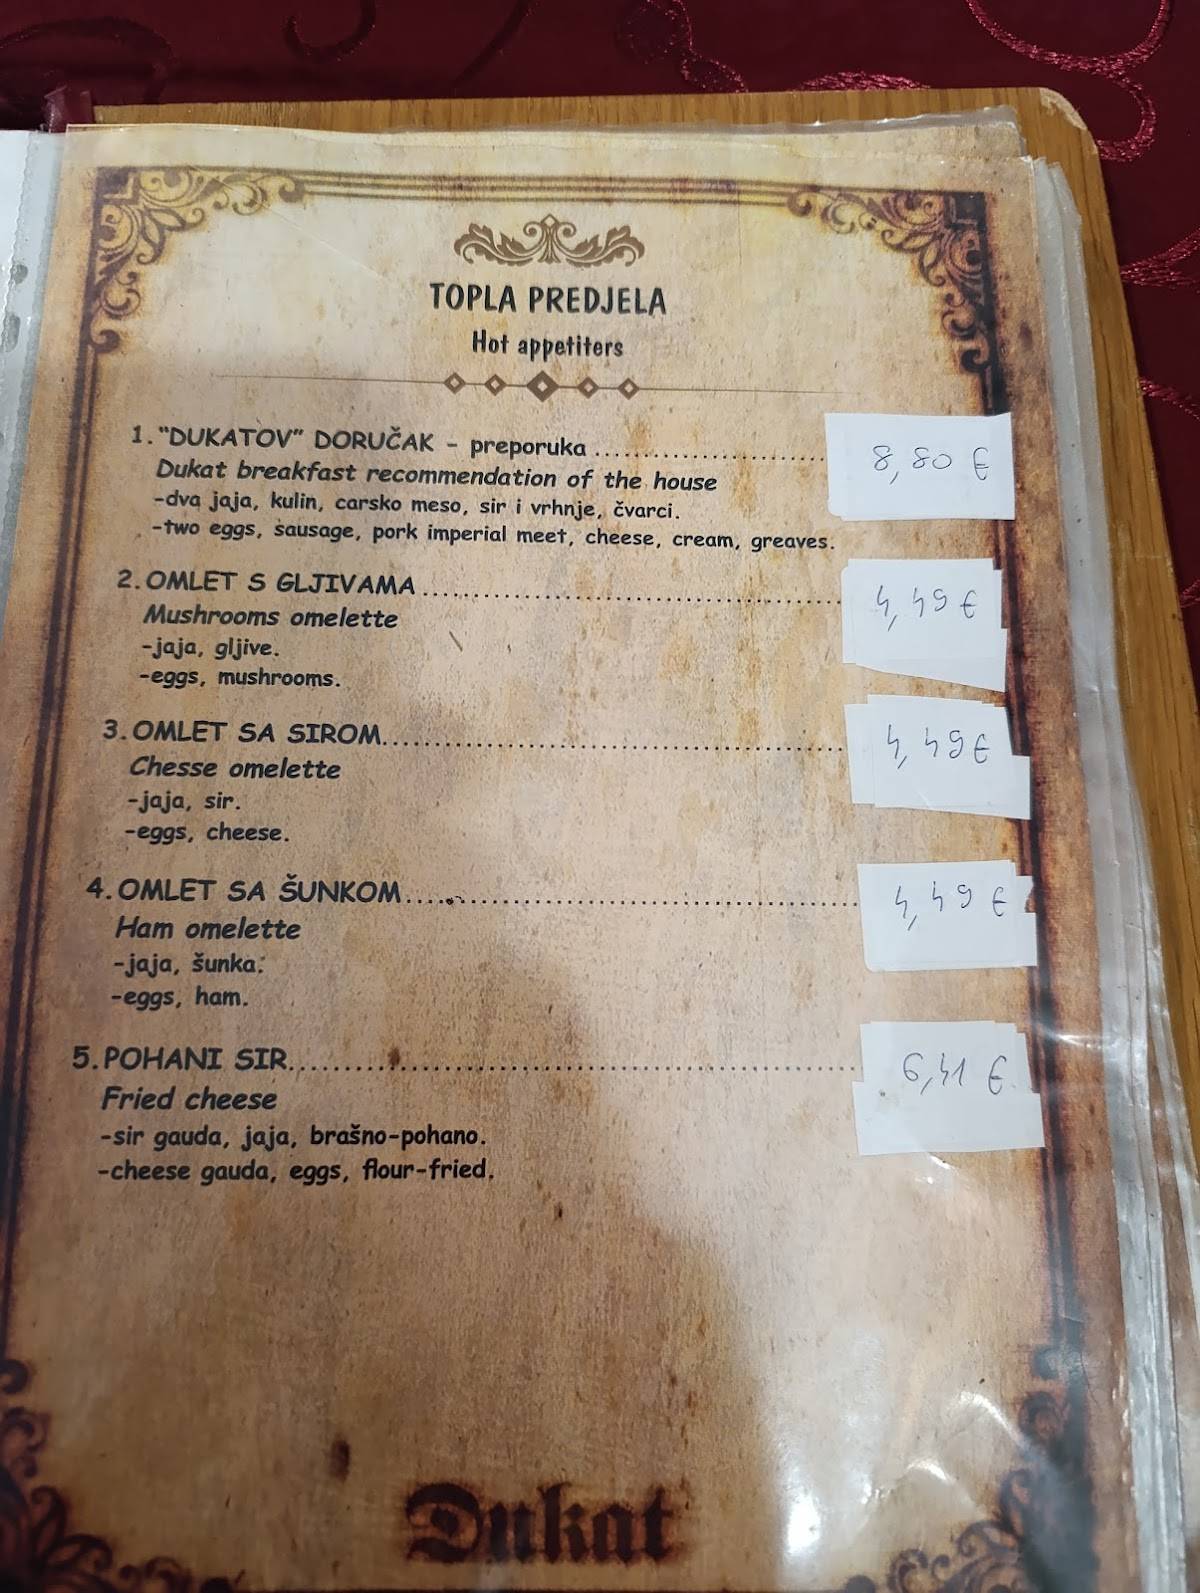 TOPLA PREDJELA
Hot appetiters
1. "DUKATOV" DORUČAK - preporuka ........................ 8,80 €
Dukat breakfast recommendation of the house
-dva jaja, kulin, carsko meso, sir i vrhnje, čvarci.
-two eggs, sausage, pork imperial meet, cheese, cream, greaves.
2. OMLET S GLJIVAMA ........................ 4,49 €
Mushrooms omelette
-jaja, gljive.
-eggs, mushrooms.
3. OMLET SA SIROM ........................ 4,49 €
Chesse omelette
-jaja, sir.
-eggs, cheese.
4. OMLET SA ŠUNKOM ........................ 4,49 €
Ham omelette
-jaja, šunka.
-eggs, ham.
5. POHANI SIR ........................ 6,41 €
Fried cheese
-sir gauda, jaja, brašno-pohano.
-cheese gauda, eggs, flour-fried.
Dukat